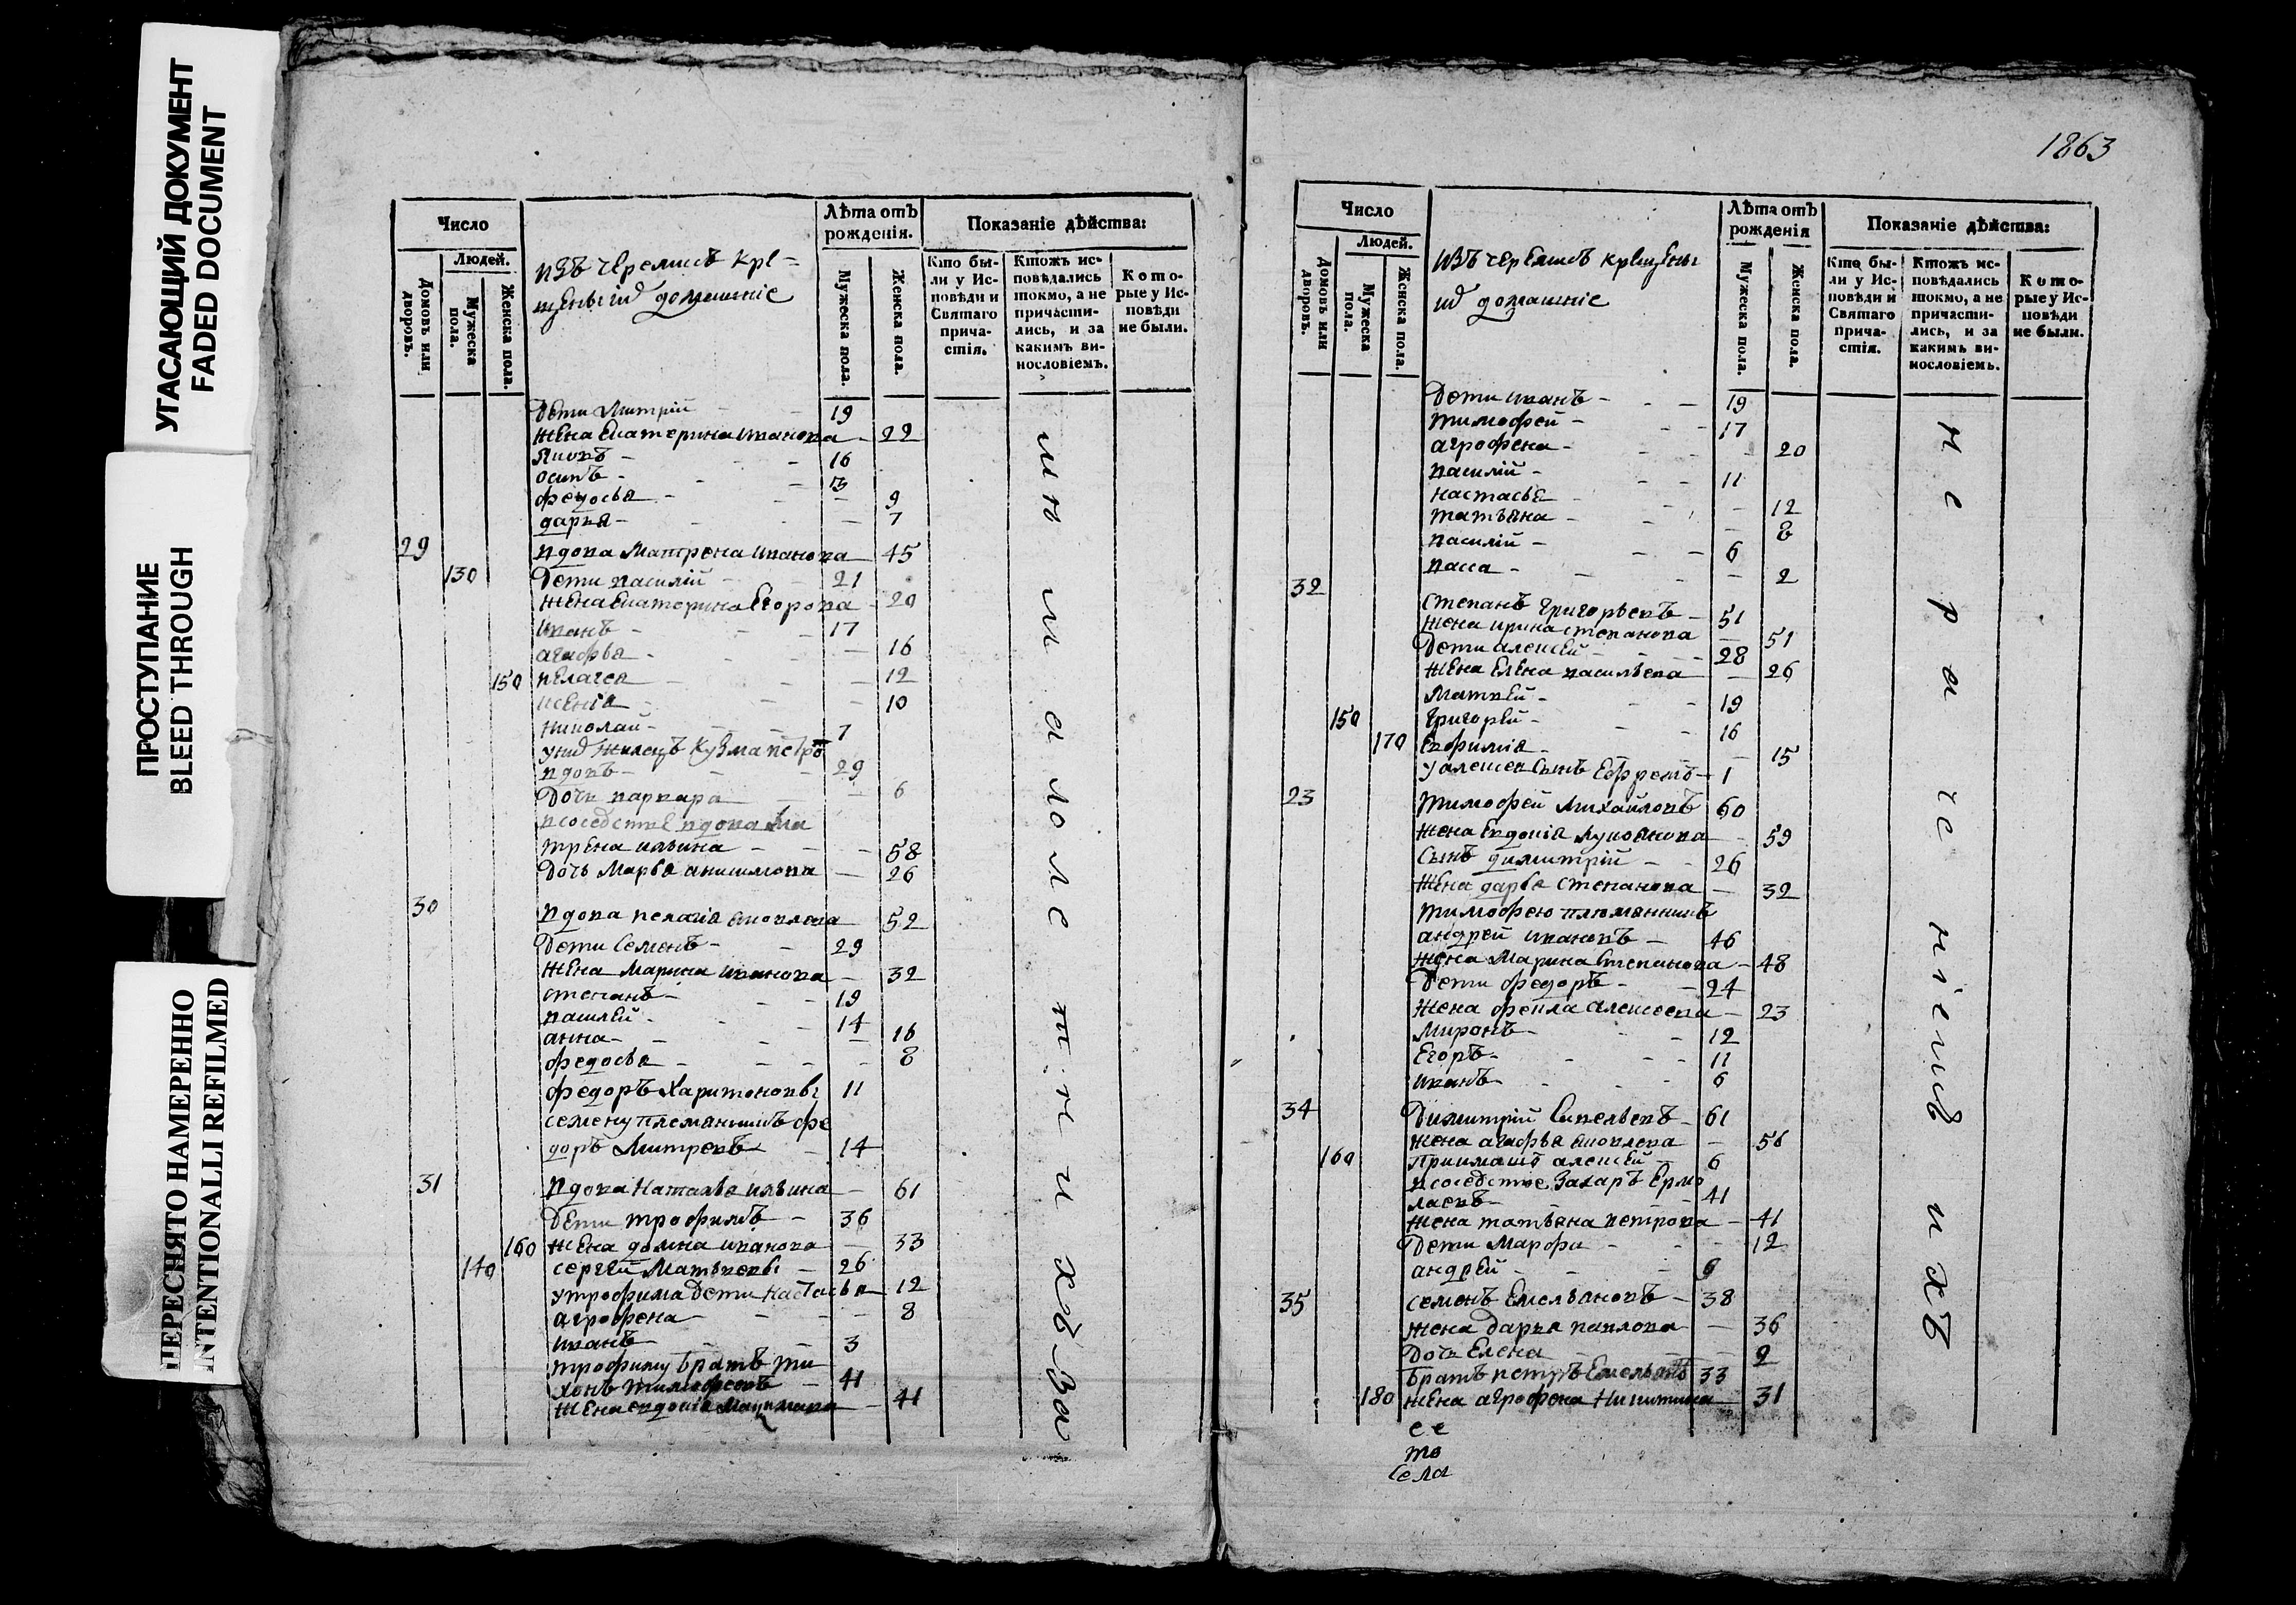 УГАСАЮЩИЙ ДОКУМЕНТ
FADED DOCUMENT
ПРОСТУПАНИЕ
BLEED THROUGH
ПЕРЕСНЯТО НАМЕРЕННО
INTENTIONALLI REFILMED
Число
Людей.
Домовъ или дворовъ.
Мужеска пола.
Женска пола.
изъ черемисъ кре-
щеныхъ домашніе
Лѣта отъ рожденія.
Мужеска пола.
Женска пола.
Показаніе дѣйства:
Кто бы-
ли у Ис-
повѣди и
Святаго
прича-
стія.
Ктожъ ис-
повѣдались
токмо, а не
причасти-
лись, и за
какимъ ви-
нословіемъ.
Кото-
рые у Ис-
повѣди
не были.
Дети Митрій - 19
жена Екатерина иванова - 22
Яковъ - 16
осипъ - 13
федосья - 9
дарья - 7
29 вдова Матрена иванова 45
130 Дети василій 21
жена Екатерина Егорова 20
иванъ - 17
агафья - 16
150 пелагея 12
ксенія - 10
николай - 7
у них жилецъ Кузма петро
вдовъ - 29
Дочь варвара 6
всоседстве вдова Ма
трена ильина 58
Дочь Марья анисимова 26
30 вдова пелагія яковлева 52
Дети Семенъ - 29
жена Марина иванова 32
степанъ - 19
анна - 16
федосья - 8
федоръ Харитоновъ 11
семену племянникъ фе
доръ Митревъ 14
31 вдова Наталья ильина 61
Дети трофимъ - 36
160 жена домна иванова 33
140 сергей Матвеевъ 26
у трофима Дети настасья 12
агрофена 8
иванъ 3
трофиму братъ ти
хонъ тимофеевъ 41
жена евдокія 41
1863
Число
Людей.
Домовъ или дворовъ.
Мужеска пола.
Женска пола.
изъ черемисъ крещены
хъ домашніе
Лѣта отъ рожденія
Мужеска пола.
Женска пола.
Показаніе дѣйства:
Кто бы-
ли у Ис-
повѣди и
Святаго
прича-
стія.
Ктожъ ис-
повѣдались
токмо, а не
причасти-
лись, и за
какимъ ви-
нословіемъ.
Кото-
рые у Ис-
повѣди
не были.
Дети иванъ - 19
тимофей - 17
агрофена - 20
василій - 11
настасья 12
татьяна - 8
василій - 6
васса - 2
32 Степанъ григорьевъ 51
жена ирина степанова 51
Дети алексей 28
жена Елена васильева 26
Матвей - 19
150 григорей - 16
170 Евфимія - 15
у алексея сынъ Ефремъ 1
23 тимофей Михайловъ 60
жена Евдокія Лукоянова 59
сынъ димитрій 26
жена дарья степанова 32
тимофею племянникъ
андрей ивановъ 46
жена Марина Степанова 48
Дети федоръ - 24
жена фекла алексеева 23
Миронъ - 12
Егоръ - 11
иванъ - 6
34 Димитрій Савельевъ 61
жена агафья яковлева 56
160 приимашъ алексей 6
всоседстве Захаръ Ермо
лаевъ - 41
жена татьяна петрова 41
Дети Марфа - 12
андрей - 9
35 семенъ Емельяновъ 38
жена дарья павлова 36
Дочь Елена 2
братъ петръ Емельяновъ 33
180 жена агрофена Никитина 31